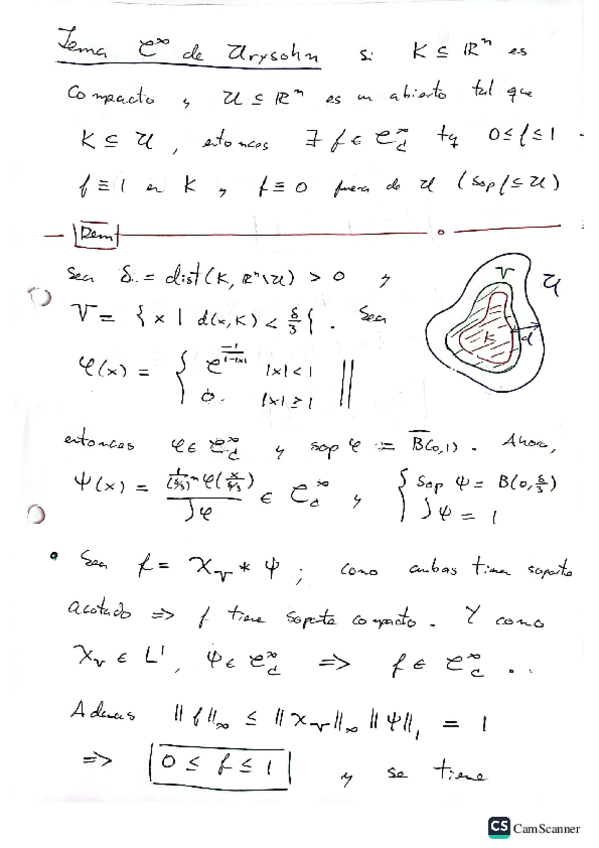 Lema C^∞ de Urysohn si K ⊆ ℝⁿ es
Compacto y U ⊆ ℝⁿ es un abierto tal que
K ⊆ U, entonces ∃ f ∈ C_c^∞ tq 0 ≤ f ≤ 1
f ≡ 1 en K y f ≡ 0 fuera de U (Sop f ⊆ U)
Dem
Sea δ := dist(K, ℝⁿ\U) > 0 y
V = { x | d(x,K) < δ/3 }. Sea
V U K d
φ(x) = { e^{-1/(1-|x|)} |x| < 1
0. |x| ≥ 1
entonces φ ∈ C_c^∞ y sop φ := B̅(0,1). Ahora,
ψ(x) = (1/(δ/3))ⁿ φ(x/(δ/3)) / ∫φ ∈ C_c^∞ y { Sop ψ = B(0, δ/3)
∫ψ = 1
• Sea f = χ_V * ψ ; como ambas tienen soporte
acotado ⇒ f tiene soporte compacto. Y como
χ_V ∈ L¹, ψ ∈ C_c^∞ ⇒ f ∈ C_c^∞ ..
Ademas ‖f‖_∞ ≤ ‖χ_V‖_∞ ‖ψ‖₁ = 1
⇒ 0 ≤ f ≤ 1 y se tiene
CS CamScanner